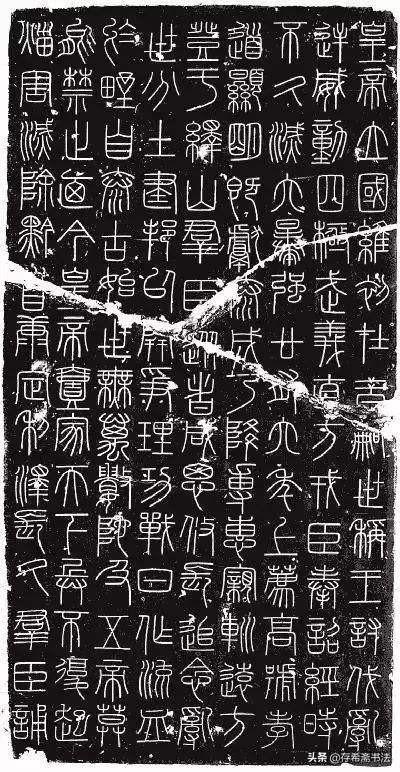 皇帝立國維初在昔嗣世稱王討伐亂
逆威動四極武義直方戎臣奉詔經時
不久滅六暴強廿有六年上薦高號孝
道顯明既獻泰成乃降專惠親巡遠方
登于繹山羣臣從者咸思攸長追念亂
世分土建邦以開爭理功戰日作流血
於野自泰古始世無萬數陀及五帝莫
能禁止廼今皇帝壹家天下兵不復起
災害滅除黔首康定利澤長久羣臣誦
头条 @存希斋书法